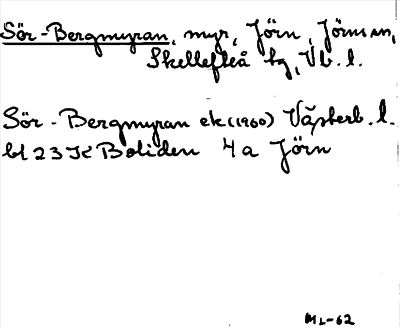 Sör-Bergmyran, myr, Jörn, Jörns sn,
Skellefteå tg, Vb. l.
Sör-Bergmyran ek (1960) Västerb. l.
bl 23 K Boliden 4 a Jörn
ML-62